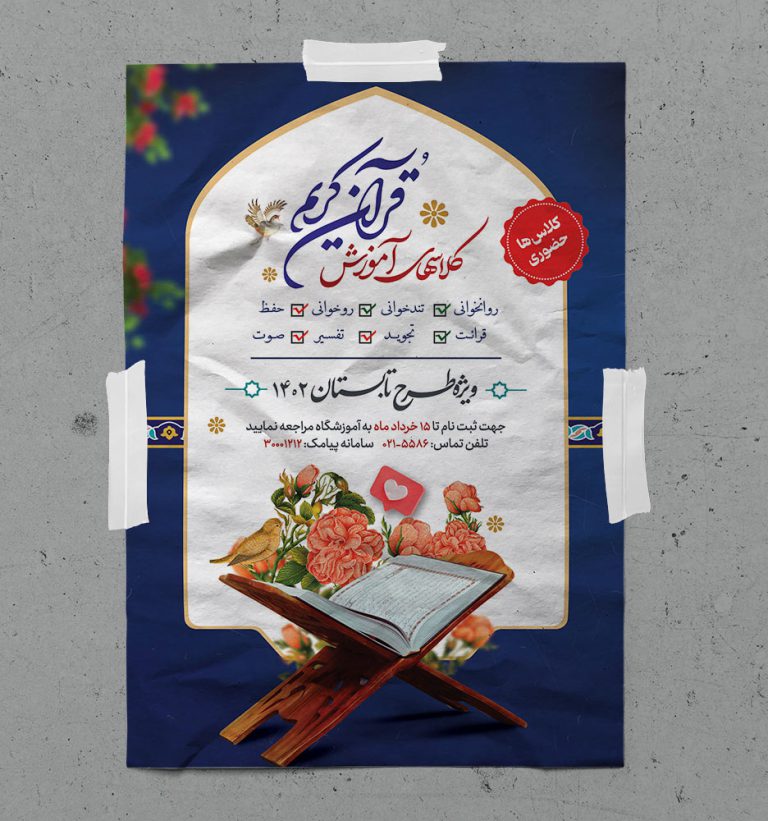 قرآن کریم
کلاسهای آموزش
کلاس‌ها
حضوری
روانخوانی تندخوانی روخوانی حفظ
قرائت تجوید تفسیر صوت
ویژه طرح تابستان ۱۴۰۲
جهت ثبت نام تا ۱۵ خرداد ماه به آموزشگاه مراجعه نمایید
تلفن تماس: ۵۵۸۶-۰۲۱ سامانه پیامک: ۳۰۰۰۱۲۱۲